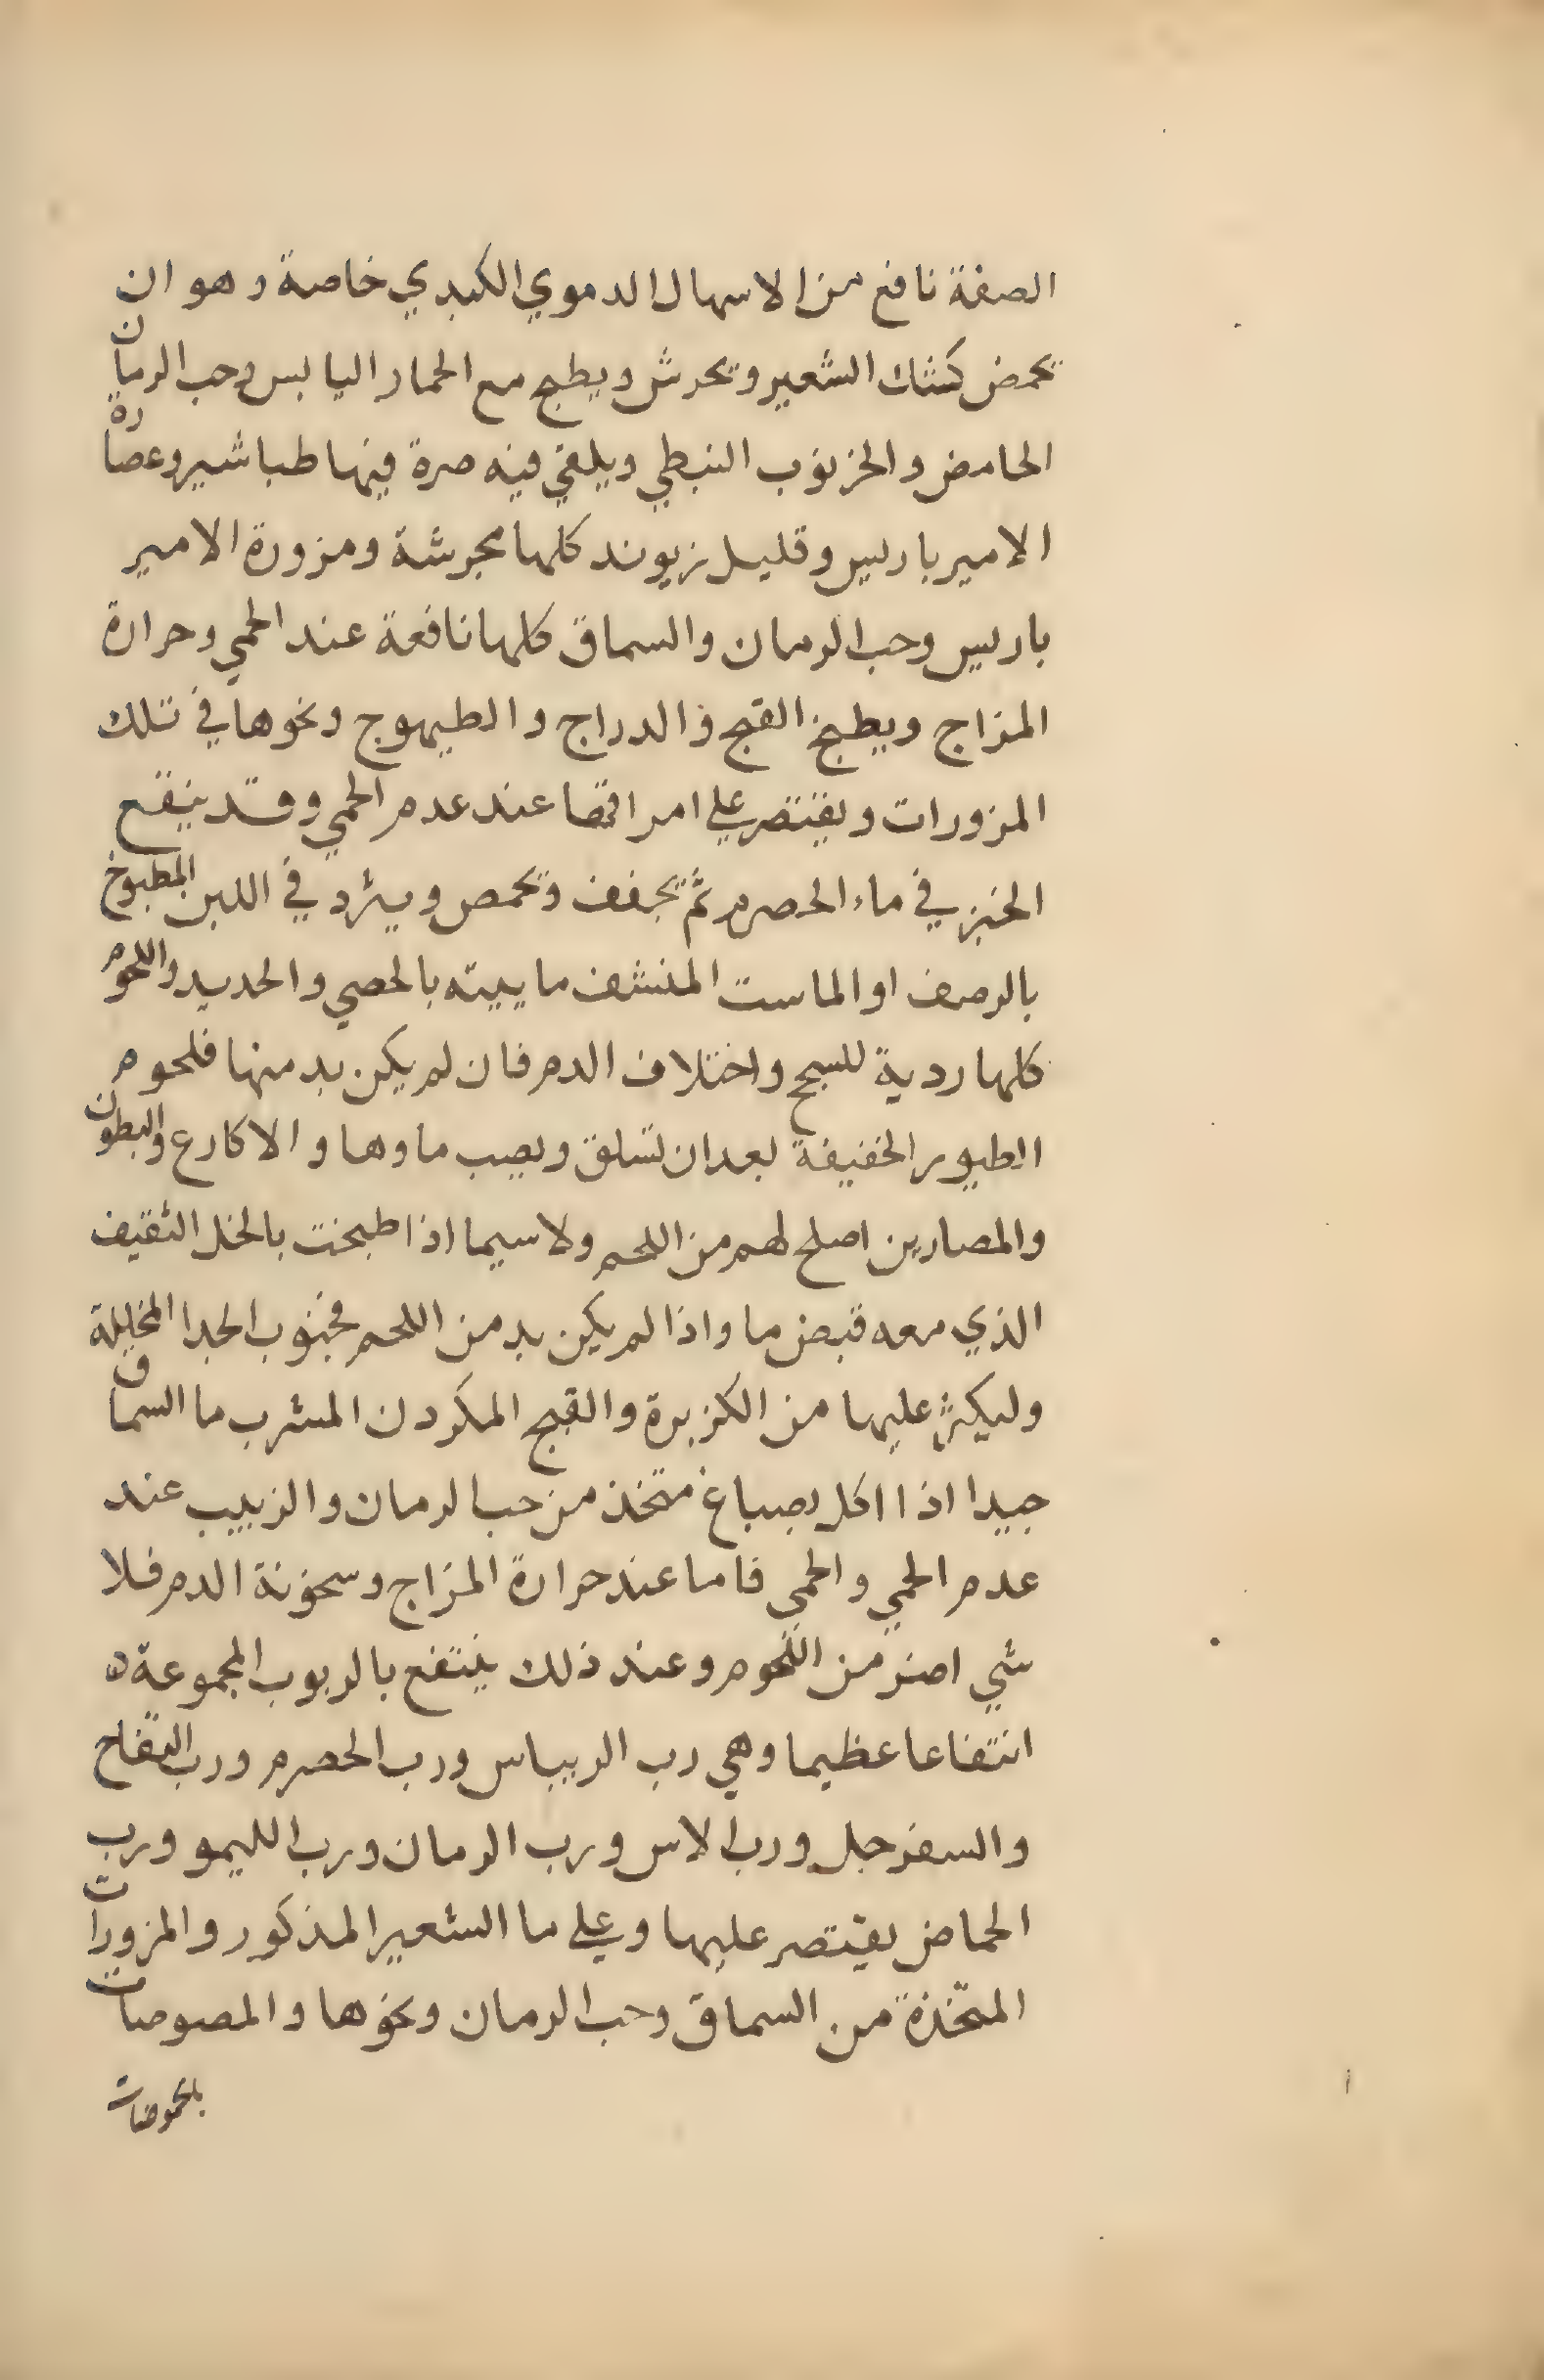 الصفة نافع من الاسهال الدموي الكبدي خاصة وهو ان
يحمض كشك الشعير ويجرش ويطبخ مع الحماز اليابس وحب الرمان
الحامض والخرنوب النبطي ويلقي فيه صرة فيها طباشير وعصارة
الامير باريس وقليل زيوند كلها مجرشة ومزورة الامير
باريس وحب الرمان والسماق كلها نافعة عند الحمي وحرارة
المزاج ويطبخ القبج والدراج والطيهوج ونحوها في تلك
المزورات ويقتصر علي امراقها عند عدم الحمي وقد ينقع
الخبز في ماء الحصرم ثم يجفف ويحمص ويثرد في اللبن المطبوخ
بالرصف او الماست المنشف ماييته بالحصي والحديد واللحوم
كلها ردية للسحج واختلاف الدم فان لم يكن بد منها فلحوم
الطيور الخفيفة بعد ان تسلق ويصب ماوها والاكارع والبطون
والمصارين اصلح لهم من اللحم ولاسيما اذا طبخت بالخل الثقيف
الذي معه قبض ما واذا لم يكن بد من اللحم فجنوب الجدا المخللة
وليكثر عليها من الكزبرة والقبج المكردن المشرب ما السماق
جيدا اذا اكل بصباغ متخذ من حب الرمان والزبيب عند
عدم الحمي والحمي فاما عند حرارة المزاج وسخونة الدم فلا
شي اضر من اللحوم وعند ذلك ينتفع بالربوب المجموعة
انتفاعا عظيما وهي رب الريباس ورب الحصرم ورب التفاح
والسفرجل ورب الاس ورب الرمان ورب الليمو ورب
الحماض يقتصر عليها وعلي ما الشعير المذكور والمزورات
المتخذة من السماق وحب الرمان ونحوها والمصوصات
بالحموضات